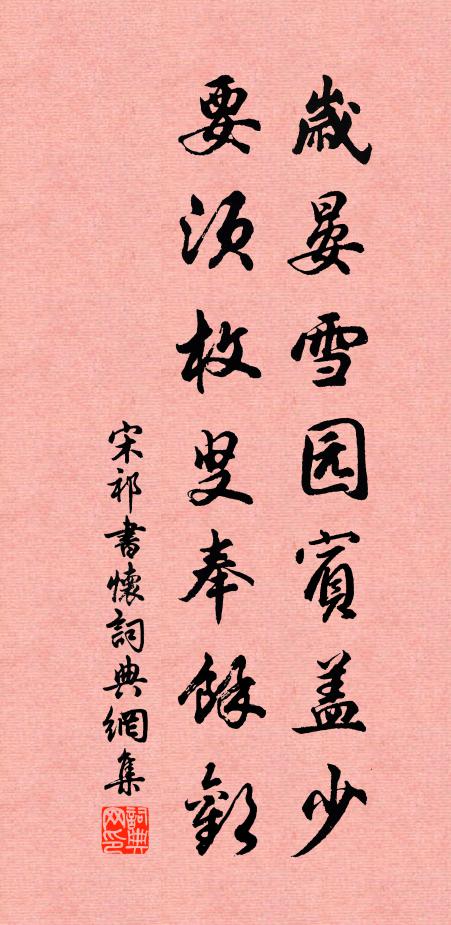 歲晏雪园賓蓋少
要須枚叟奉餘歡
宋祁書懷詞典網集
詞典网印